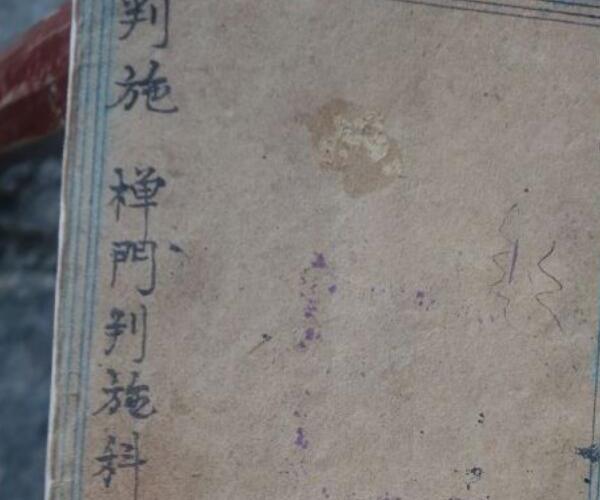 判施 樿門判施科